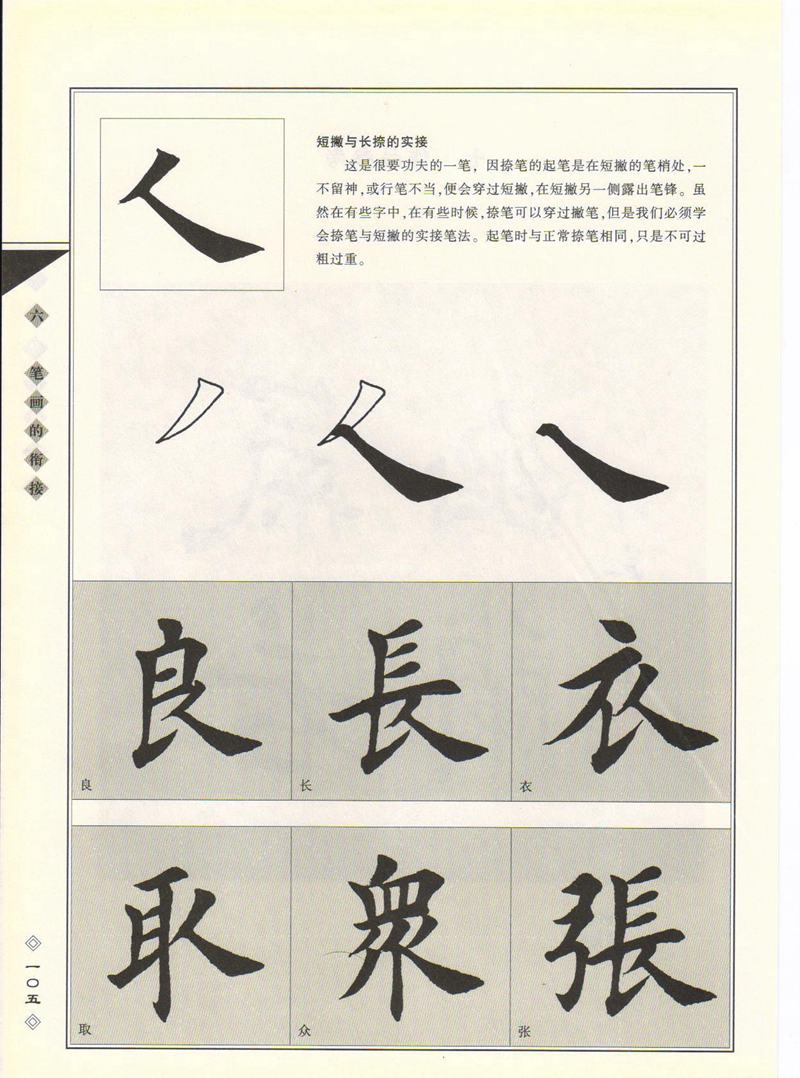 短撇与长捺的实接
这是很要功夫的一笔，因捺笔的起笔是在短撇的笔梢处，一
不留神，或行笔不当，便会穿过短撇，在短撇另一侧露出笔锋。虽
然在有些字中，在有些时候，捺笔可以穿过撇笔，但是我们必须学
会捺笔与短撇的实接笔法。起笔时与正常捺笔相同，只是不可过
粗过重。
六 笔画的衔接
良 長 衣
良 长 衣
取 衆 張
取 众 张
一〇五